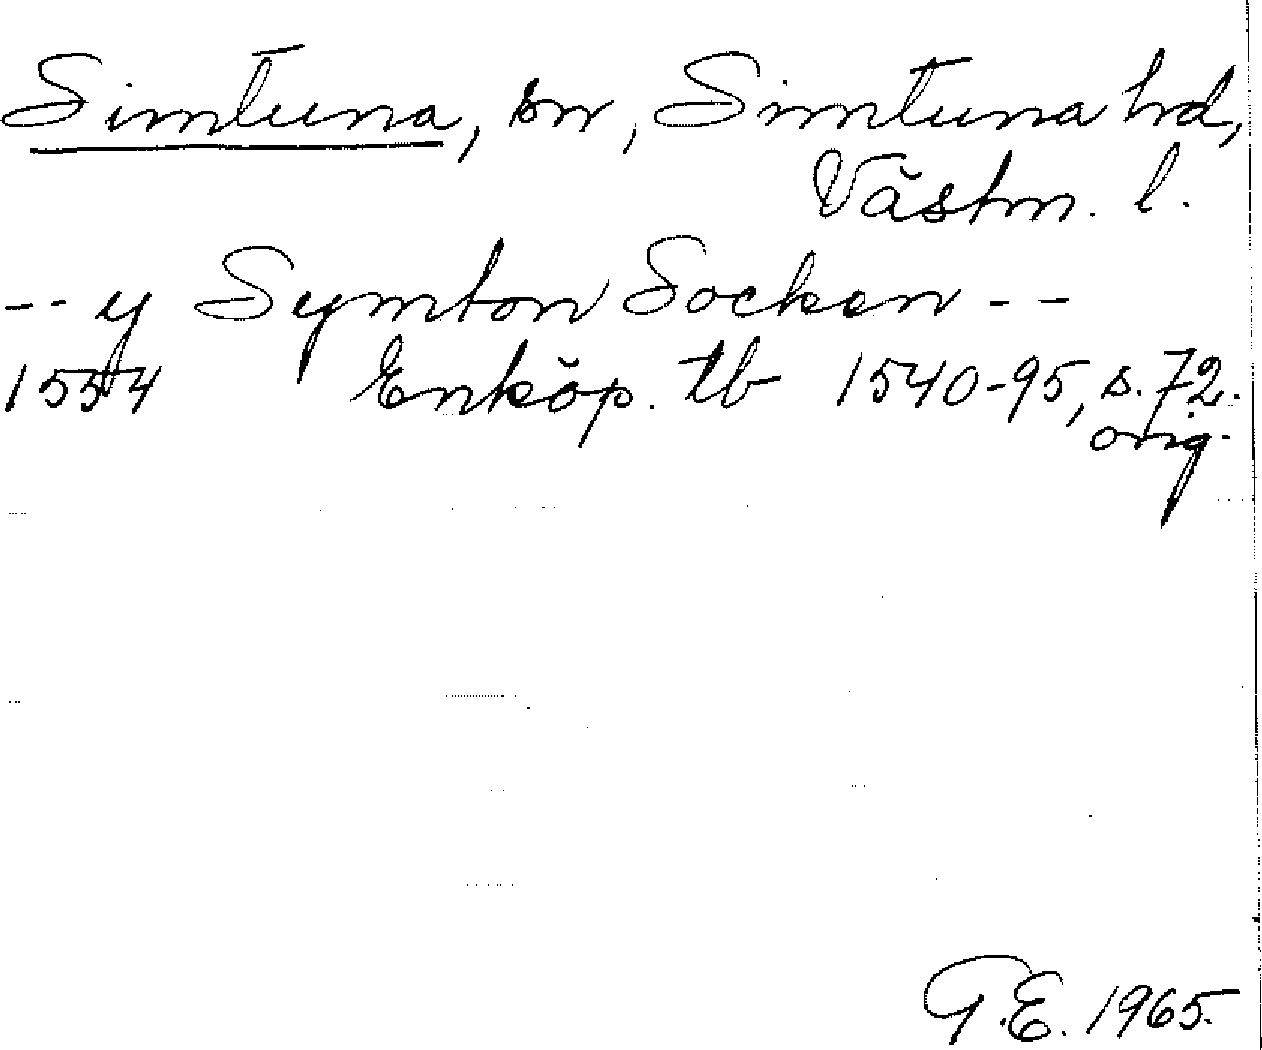 Simtuna, sn, Simtuna hd,
Västm. l.
-- y Symton Socken --
1554 Enköp. tb 1540-95, s. 72.
orig.
G.E. 1965.